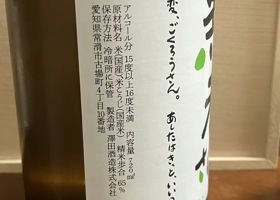 変、ごくろうさん。
あしたはきっと、いい
アルコール分 15度以上16度未満 内容量 720ml
原材料名 米(国産)、米こうじ(国産米) 精米歩合 65%
保存方法 冷暗所に保管 製造者 澤田酒造株式会社
愛知県常滑市古場町4丁目10番地